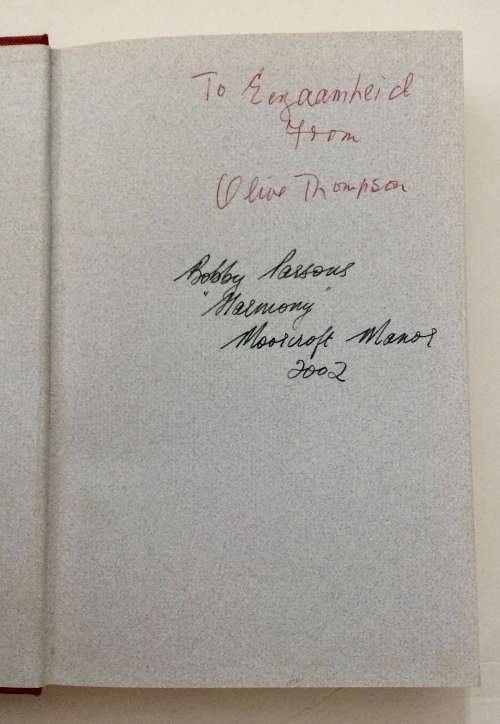 To Eenzaamheid
From
Olive Thompson
Bobby Parsons
"Harmony"
Moorcroft Manor
2002